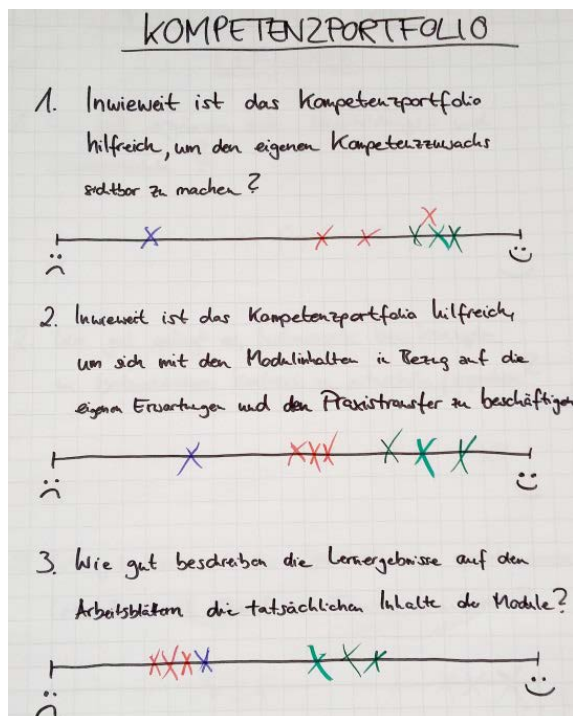 KOMPETENZPORTFOLIO
1. Inwieweit ist das Kompetenzportfolio
hilfreich, um den eigenen Kompetenzzuwachs
sichtbar zu machen?
2. Inwieweit ist das Kompetenzportfolio hilfreich,
um sich mit den Modulinhalten in Bezug auf die
eigenen Erwartungen und den Praxistransfer zu beschäftigen
3. Wie gut beschreiben die Lernergebnisse auf den
Arbeitsblättern die tatsächlichen Inhalte der Module?